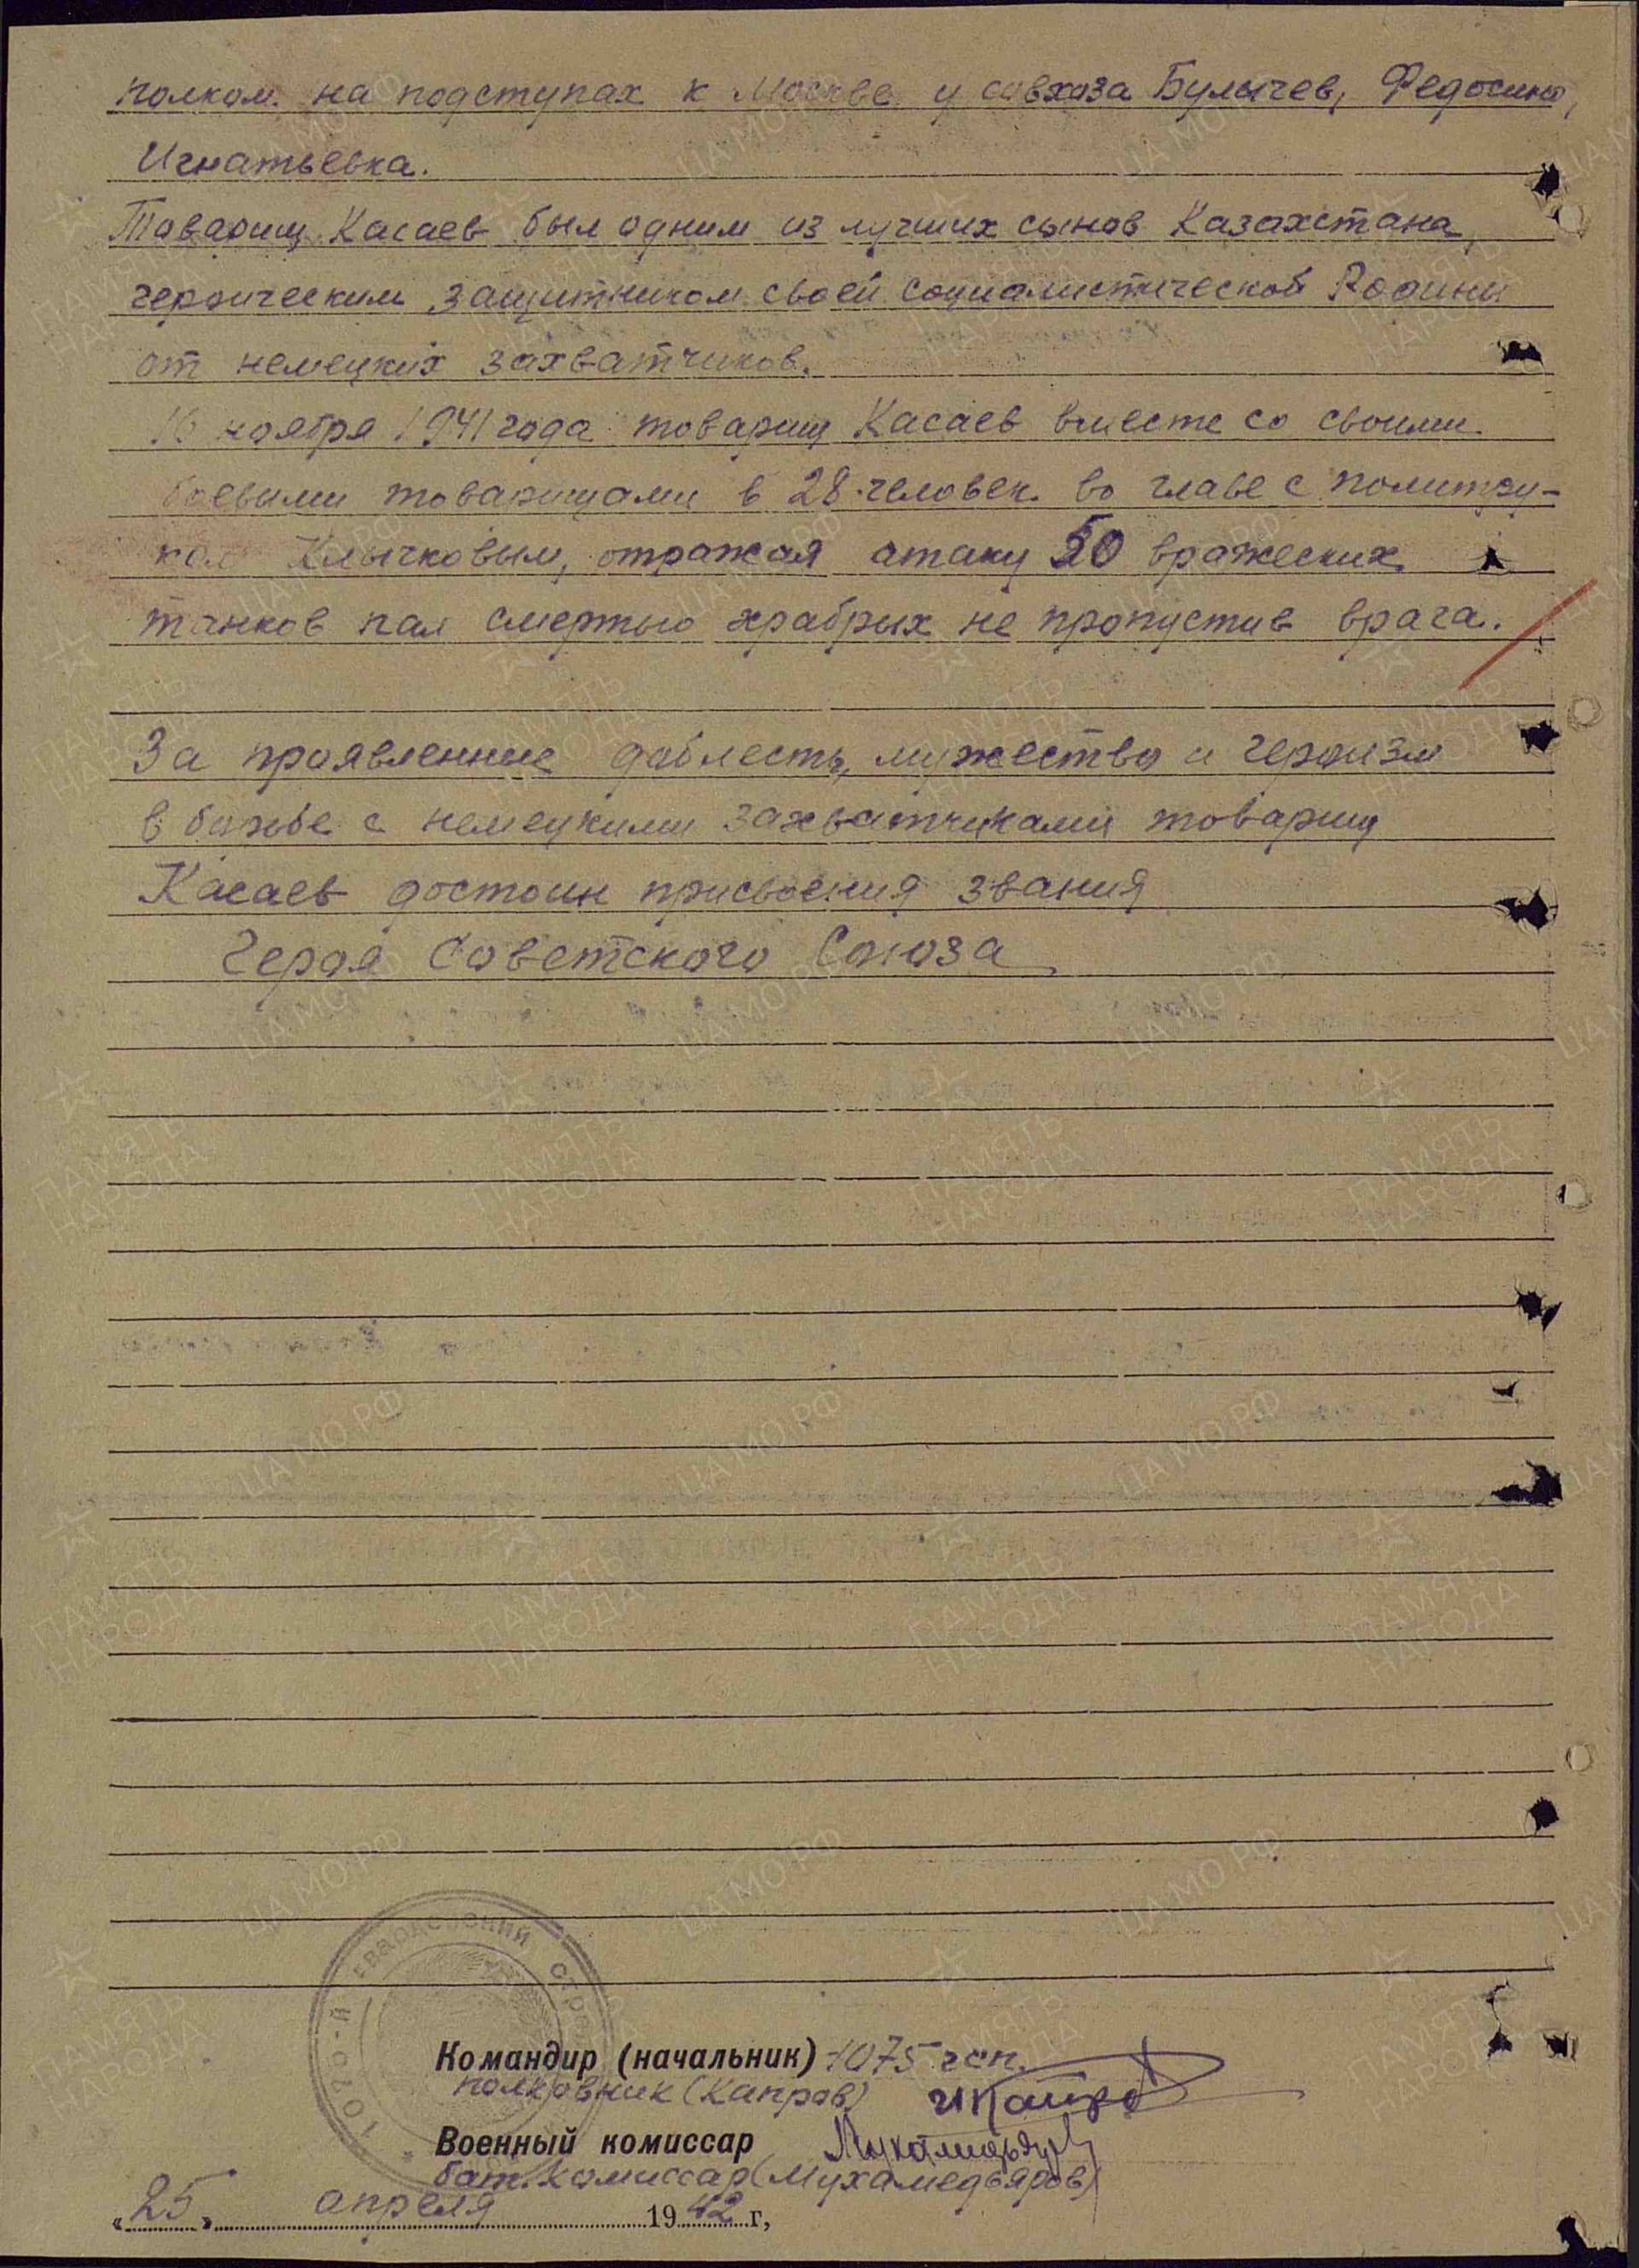 полком на подступах к Москве у совхоза Булычев, Федосино,
Игнатьевка.
Товарищ Касаев был одним из лучших сынов Казахстана,
героическим защитником своей социалистической Родины
от немецких захватчиков.
16 ноября 1941 года товарищ Касаев вместе со своими
боевыми товарищами в 28 человек во главе с политру-
ком Клычковым, отражая атаку 50 вражеских
танков пал смертью храбрых не пропустив врага.
За проявленные доблесть, мужество и героизм
в борьбе с немецкими захватчиками товарищ
Касаев достоин присвоения звания
Героя Советского Союза
Командир (начальник) 1075 гсп.
полковник (Капров) ИКапров
Военный комиссар Мухамедьяров
бат. комиссар (Мухамедьяров)
„25„ апреля 1942 г,
ПАМЯТЬ НАРОДА
ЦА МО РФ